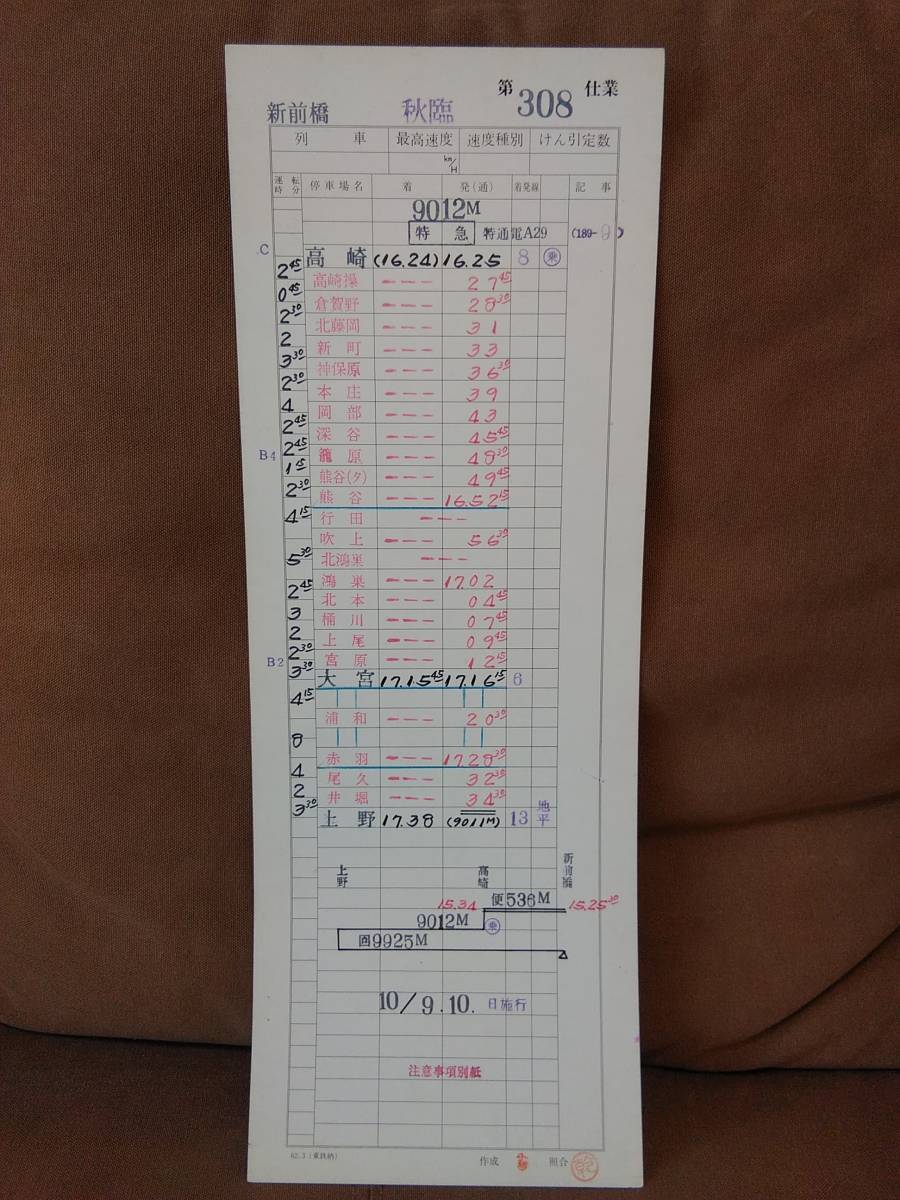 新前橋 秋臨 第308仕業
列車 最高速度 速度種別 けん引定数
km/H
運転時分 停車場名 着 発(通) 着発線 記事
9012M
特急 特通電A29 (189-9)
C 高崎 (16.24) 16.25 8 乗
2 45 高崎操 --- 27 45
0 45 倉賀野 --- 28 30
2 30 北藤岡 --- 31
2 新町 --- 33
3 30 神保原 --- 36 30
2 30 本庄 --- 39
4 岡部 --- 43
2 45 深谷 --- 45 45
B4 2 45 籠原 --- 48 30
1 15 熊谷(タ) --- 49 45
2 30 熊谷 --- 16.52 15
4 15 行田 ---
吹上 --- 56 30
5 30 北鴻巣 ---
鴻巣 --- 17.02
2 45 北本 --- 04 45
3 桶川 --- 07 45
2 上尾 --- 09 45
B2 2 30 宮原 --- 12 15
3 30 大宮 17.15 45 17.16 15 6
4 15
浦和 --- 20 30
8
赤羽 --- 17.28 30
4 尾久 --- 32 30
2 井堀 --- 34 30
3 30 上野 17.38 (9011M) 13 地平
上野 高崎 新前橋
15.34 便536M 15.25 30
9012M 乗
回9925M
10/9.10. 日施行
注意事項別紙
62.3 (東鉄納) 作成 照合